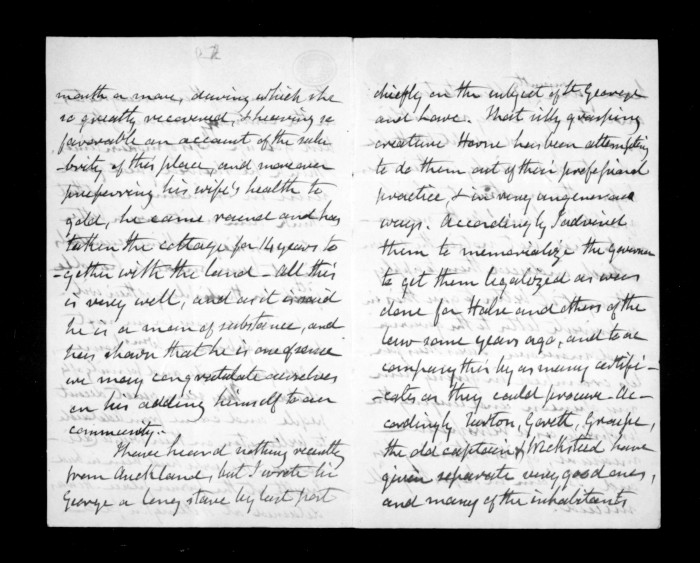 month or more, during which she
so greatly recovered, & hearing so
favorable an account of the salu
brity of this place, and moreover
preferring his wife's health to
gold, he came round and has
taken the cottage for 14 years to
-gether with the land - All this
is very well, and as it is said
he is a man of substance, and
has shown that he is one of sense
we may congratulate ourselves
on his adding himself to our
community.-
I have heard nothing recently
from Auckland, but I wrote Sir
George a long stave by last post
chiefly on the subject of St. George
and Law. That silly grasping
creature Horne has been attempting
to do them out of their professional
practice, & in very ungenerous
ways. Accordingly I advised
them to memorialize the Governor
to get them legalized as was
done for Halse and others of the
Law some years ago, and to ac
company this by as many certifi-
-cates as they could procure - Ac-
-cordingly Turton, Govett, Groube,
the old captain & Wicksteed have
given separate very good ones,
and many of the inhabitants